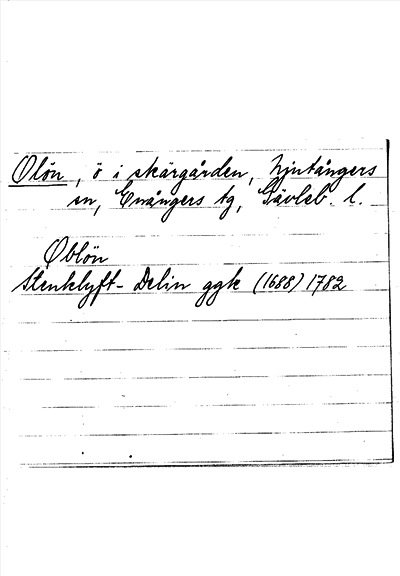 Olön, ö i skärgården, Njutångers
sn, Enångers tg, Gävleb. l.
Øblön
Stenklyft- Delin ggk (1688) 1782